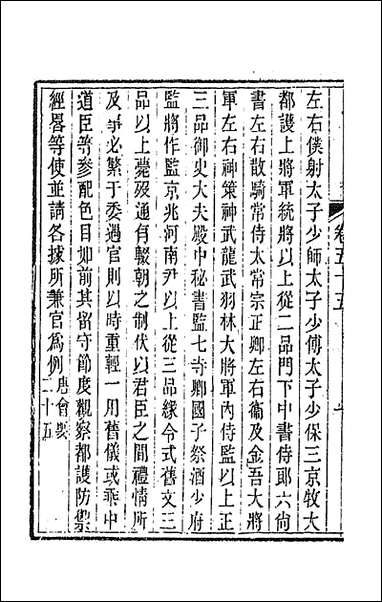 卷五十五
左右僕射太子少師太子少傅太子少保三京牧大
都護上將軍統將以上從二品門下中書侍郎六尚
書左右散騎常侍太常宗正卿左右衞及金吾大將
軍左右神策神武龍武羽林大將軍內侍監以上正
三品御史大夫殿中秘書監七寺卿國子祭酒少府
監將作監京兆河南尹以上從三品緣令式舊文三
品以上薨歿通有輟朝之制伏以君臣之間禮情所
及事必繁于委過官則以時重輕一用舊儀或乖中
道臣等參配色目如前其留守節度觀察都護防禦
經畧等使並請各據所兼官爲例唐會要二十五